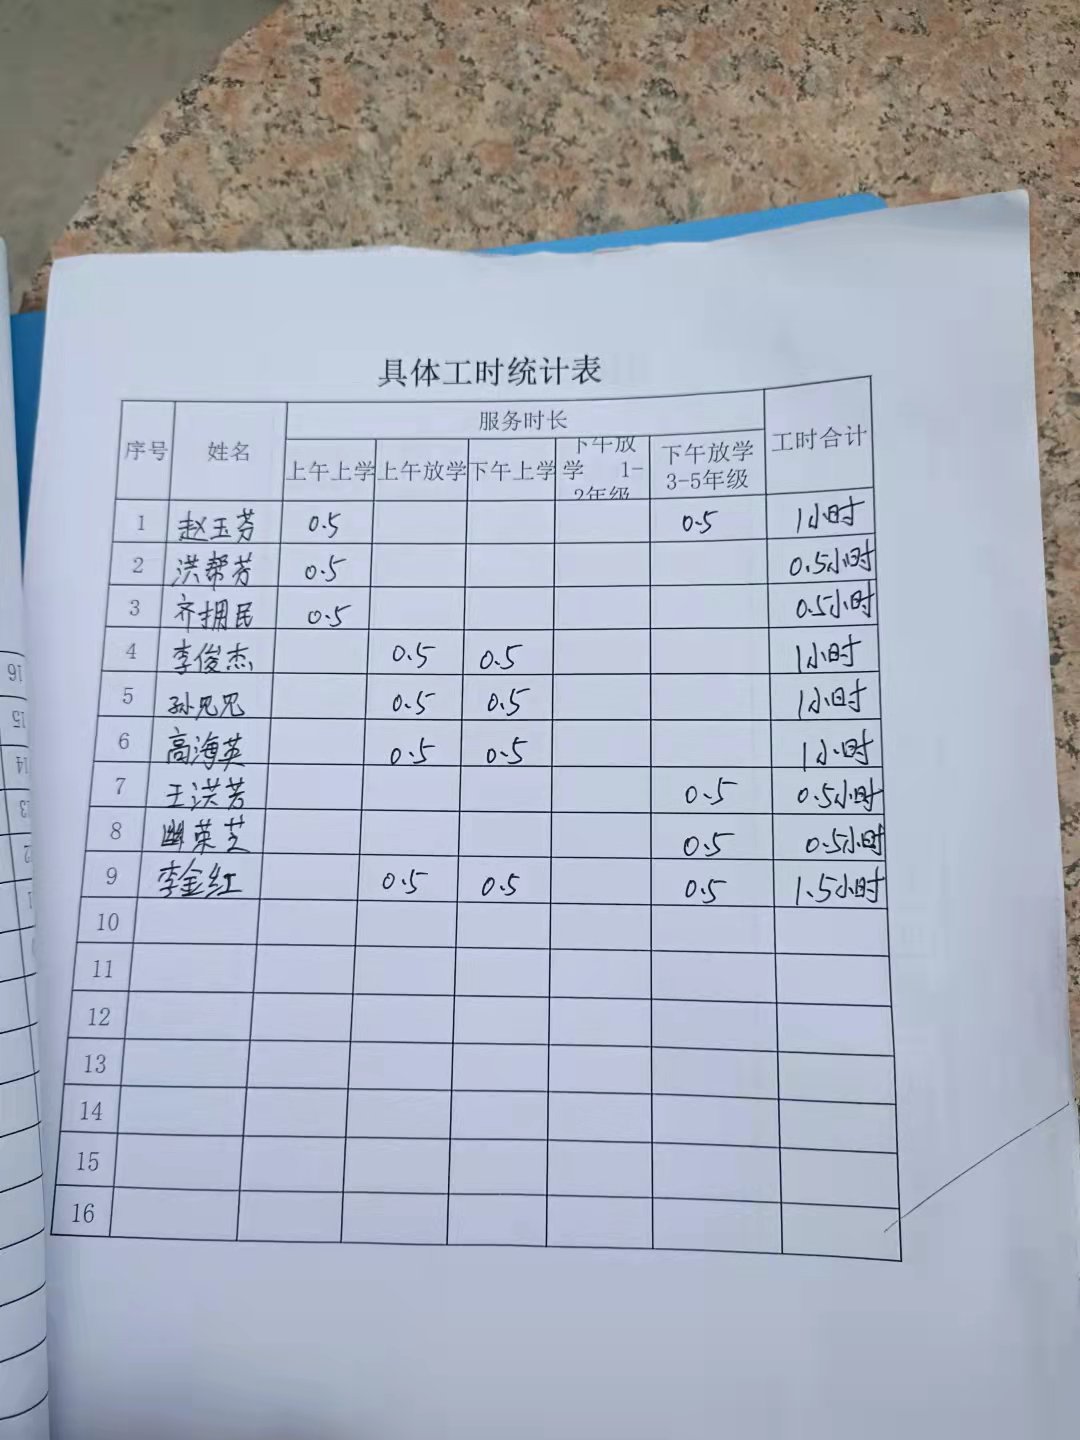 具体工时统计表
序号 姓名 服务时长 工时合计
上午上学 上午放学 下午上学 下午放学 1-2年级 下午放学 3-5年级
1 赵玉芬 0.5 0.5 1小时
2 洪帮芳 0.5 0.5小时
3 齐拥民 0.5 0.5小时
4 李俊杰 0.5 0.5 1小时
5 孙 0.5 0.5 1小时
6 高海英 0.5 0.5 1小时
7 王洪芳 0.5 0.5小时
8 荣芝 0.5 0.5小时
9 李金红 0.5 0.5 0.5 1.5小时
10
11
12
13
14
15
16
16
15
14
13